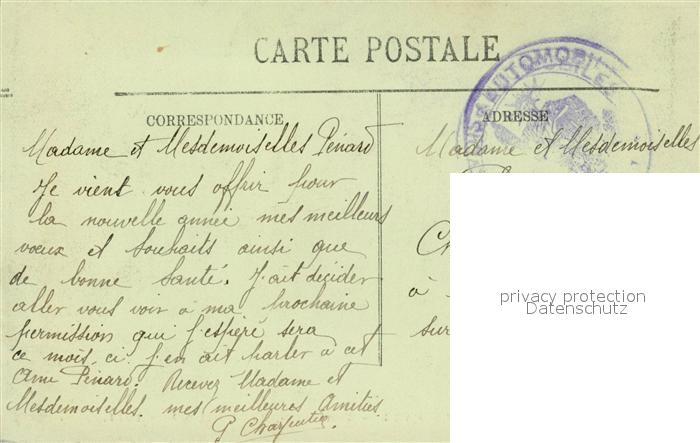 CARTE POSTALE
CORRESPONDANCE
Madame et Mesdemoiselles Pénard
Je vient vous offrir pour
la nouvelle année mes meilleurs
voeux et souhaits ainsi que
de bonne santé. J'ait décider
aller vous voir à ma prochaine
permission qui j'espère sera
ce mois. ci. j'en ait parler à cet
Ami Pénard. Recevez Madame et
Mesdemoiselles. mes meilleures Amitiés
P Charpentier.
ADRESSE
AUTOMOBILES
Madame et Mesdemoiselles
à
sur
privacy protection
Datenschutz